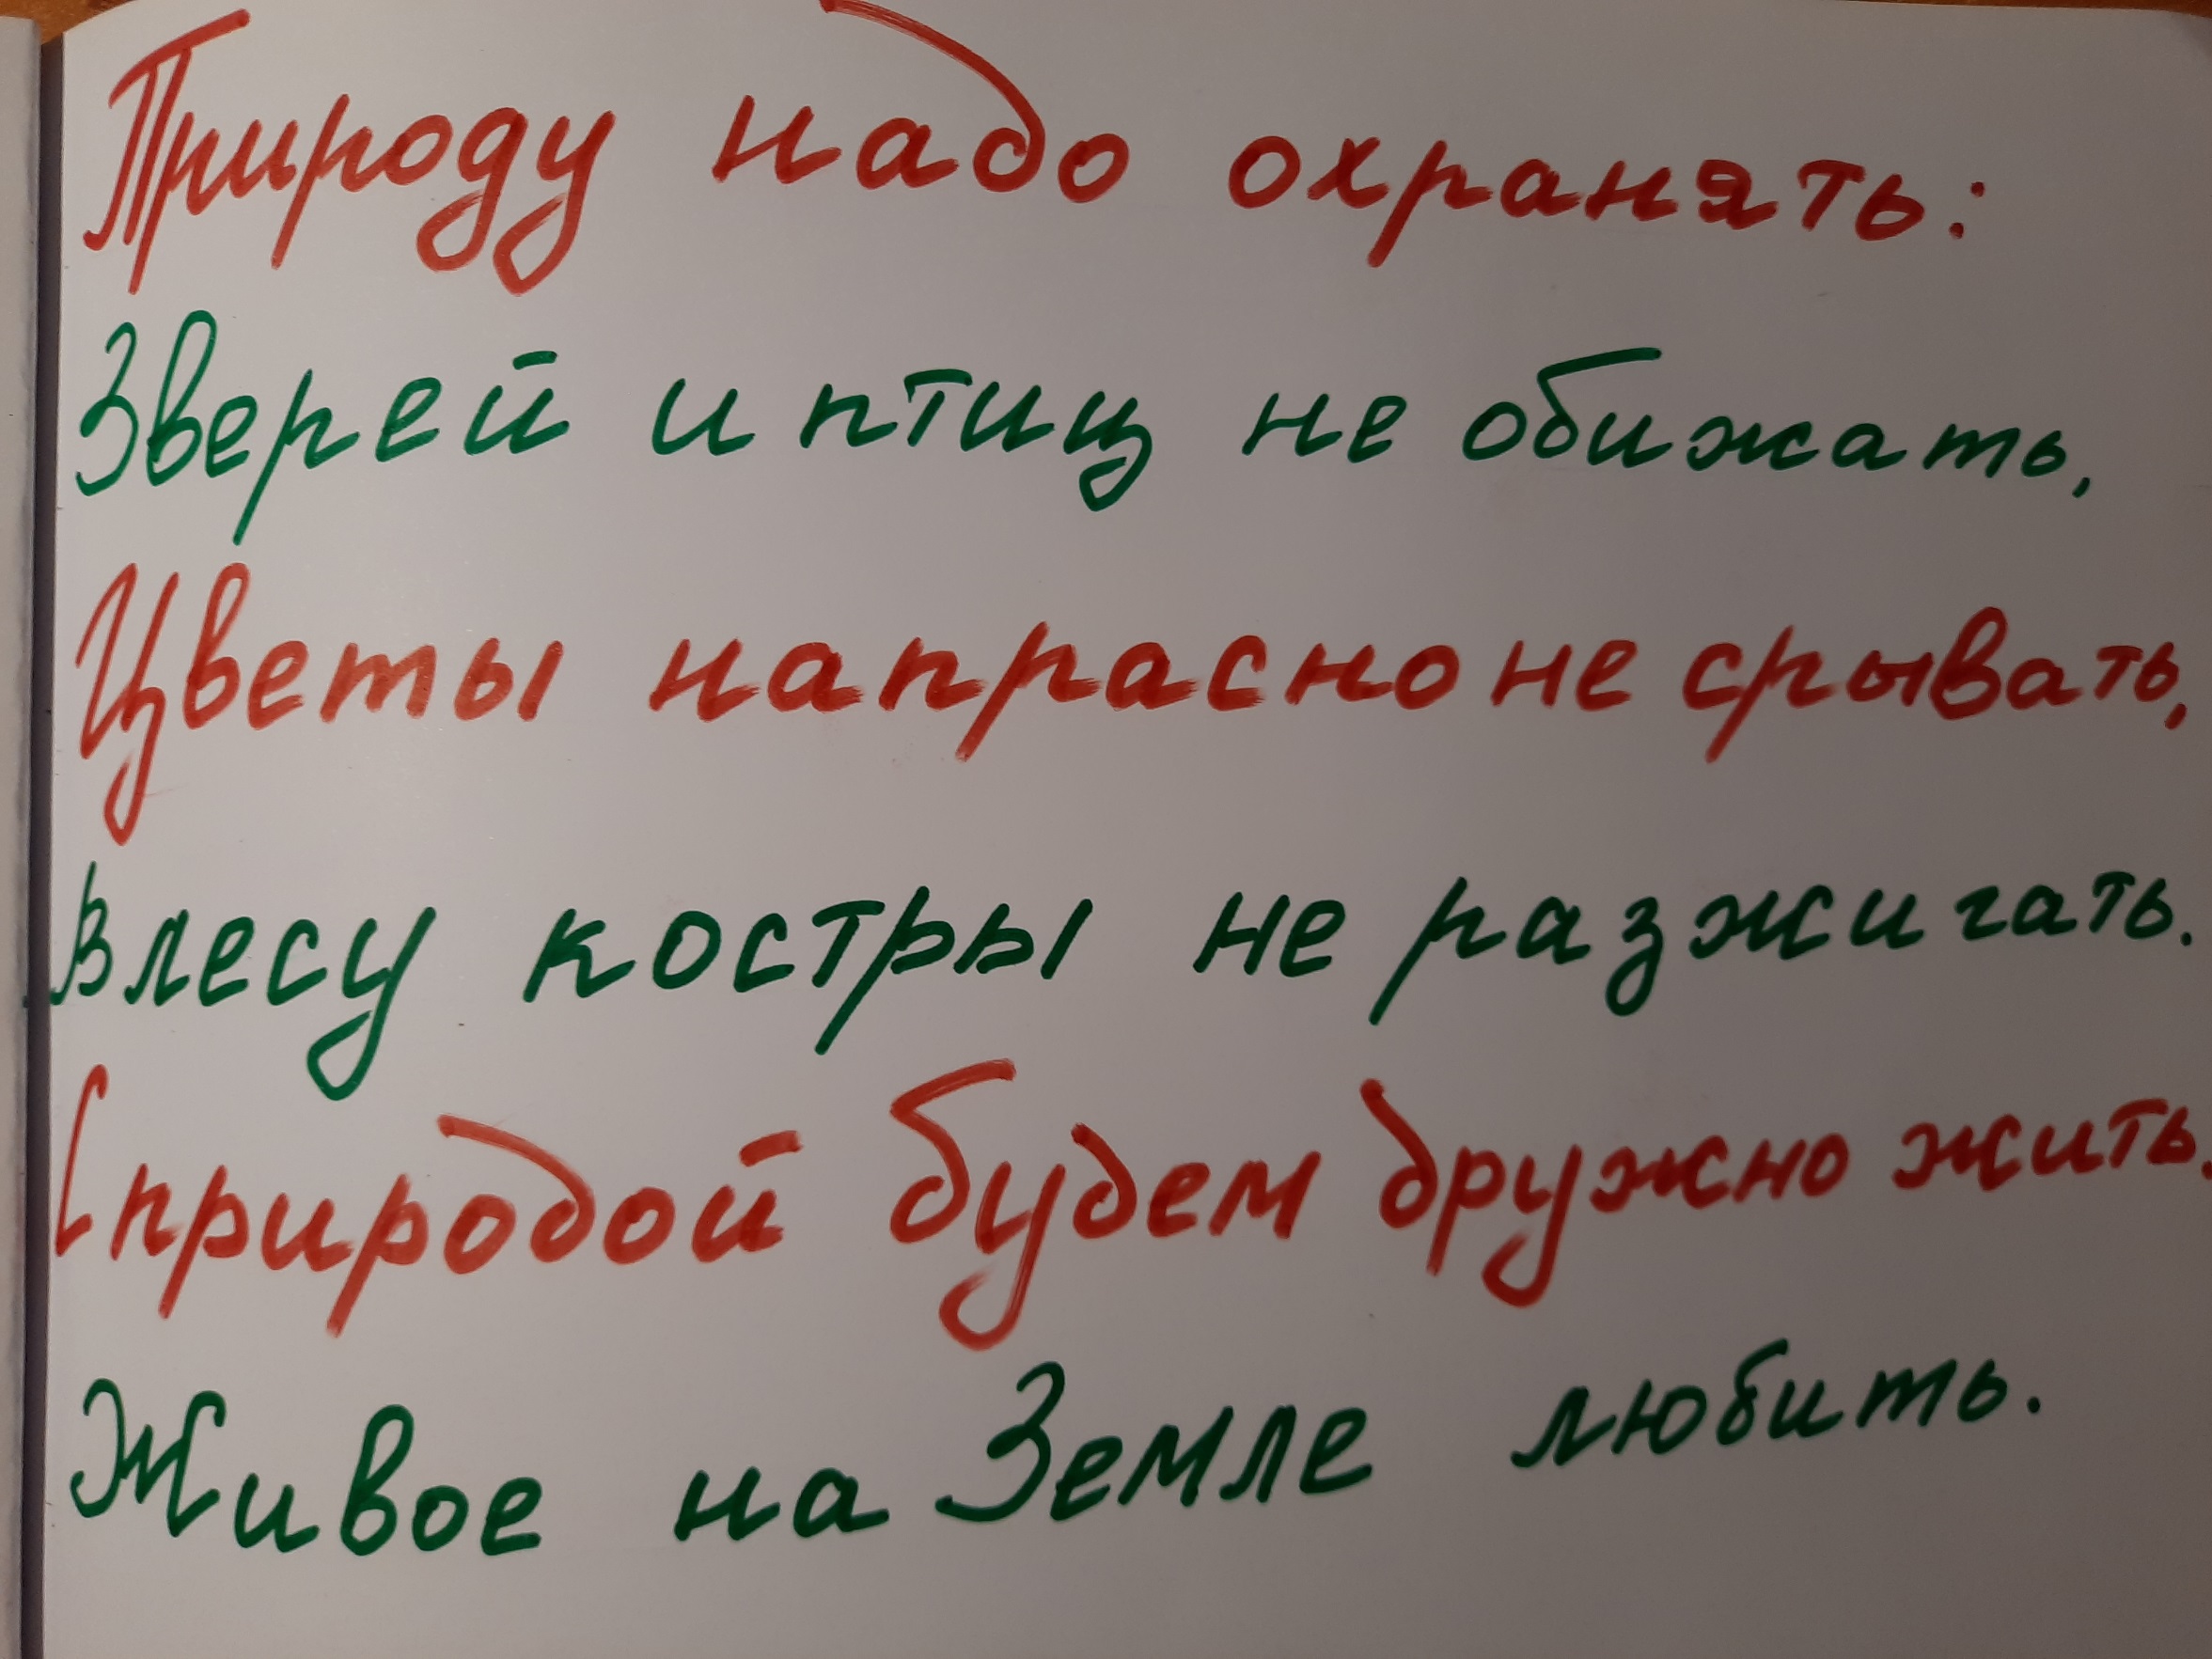 Природу надо охранять:
Зверей и птиц не обижать,
Цветы напрасно не срывать,
В лесу костры не разжигать.
С природой будем дружно жить.
Живое на Земле любить.